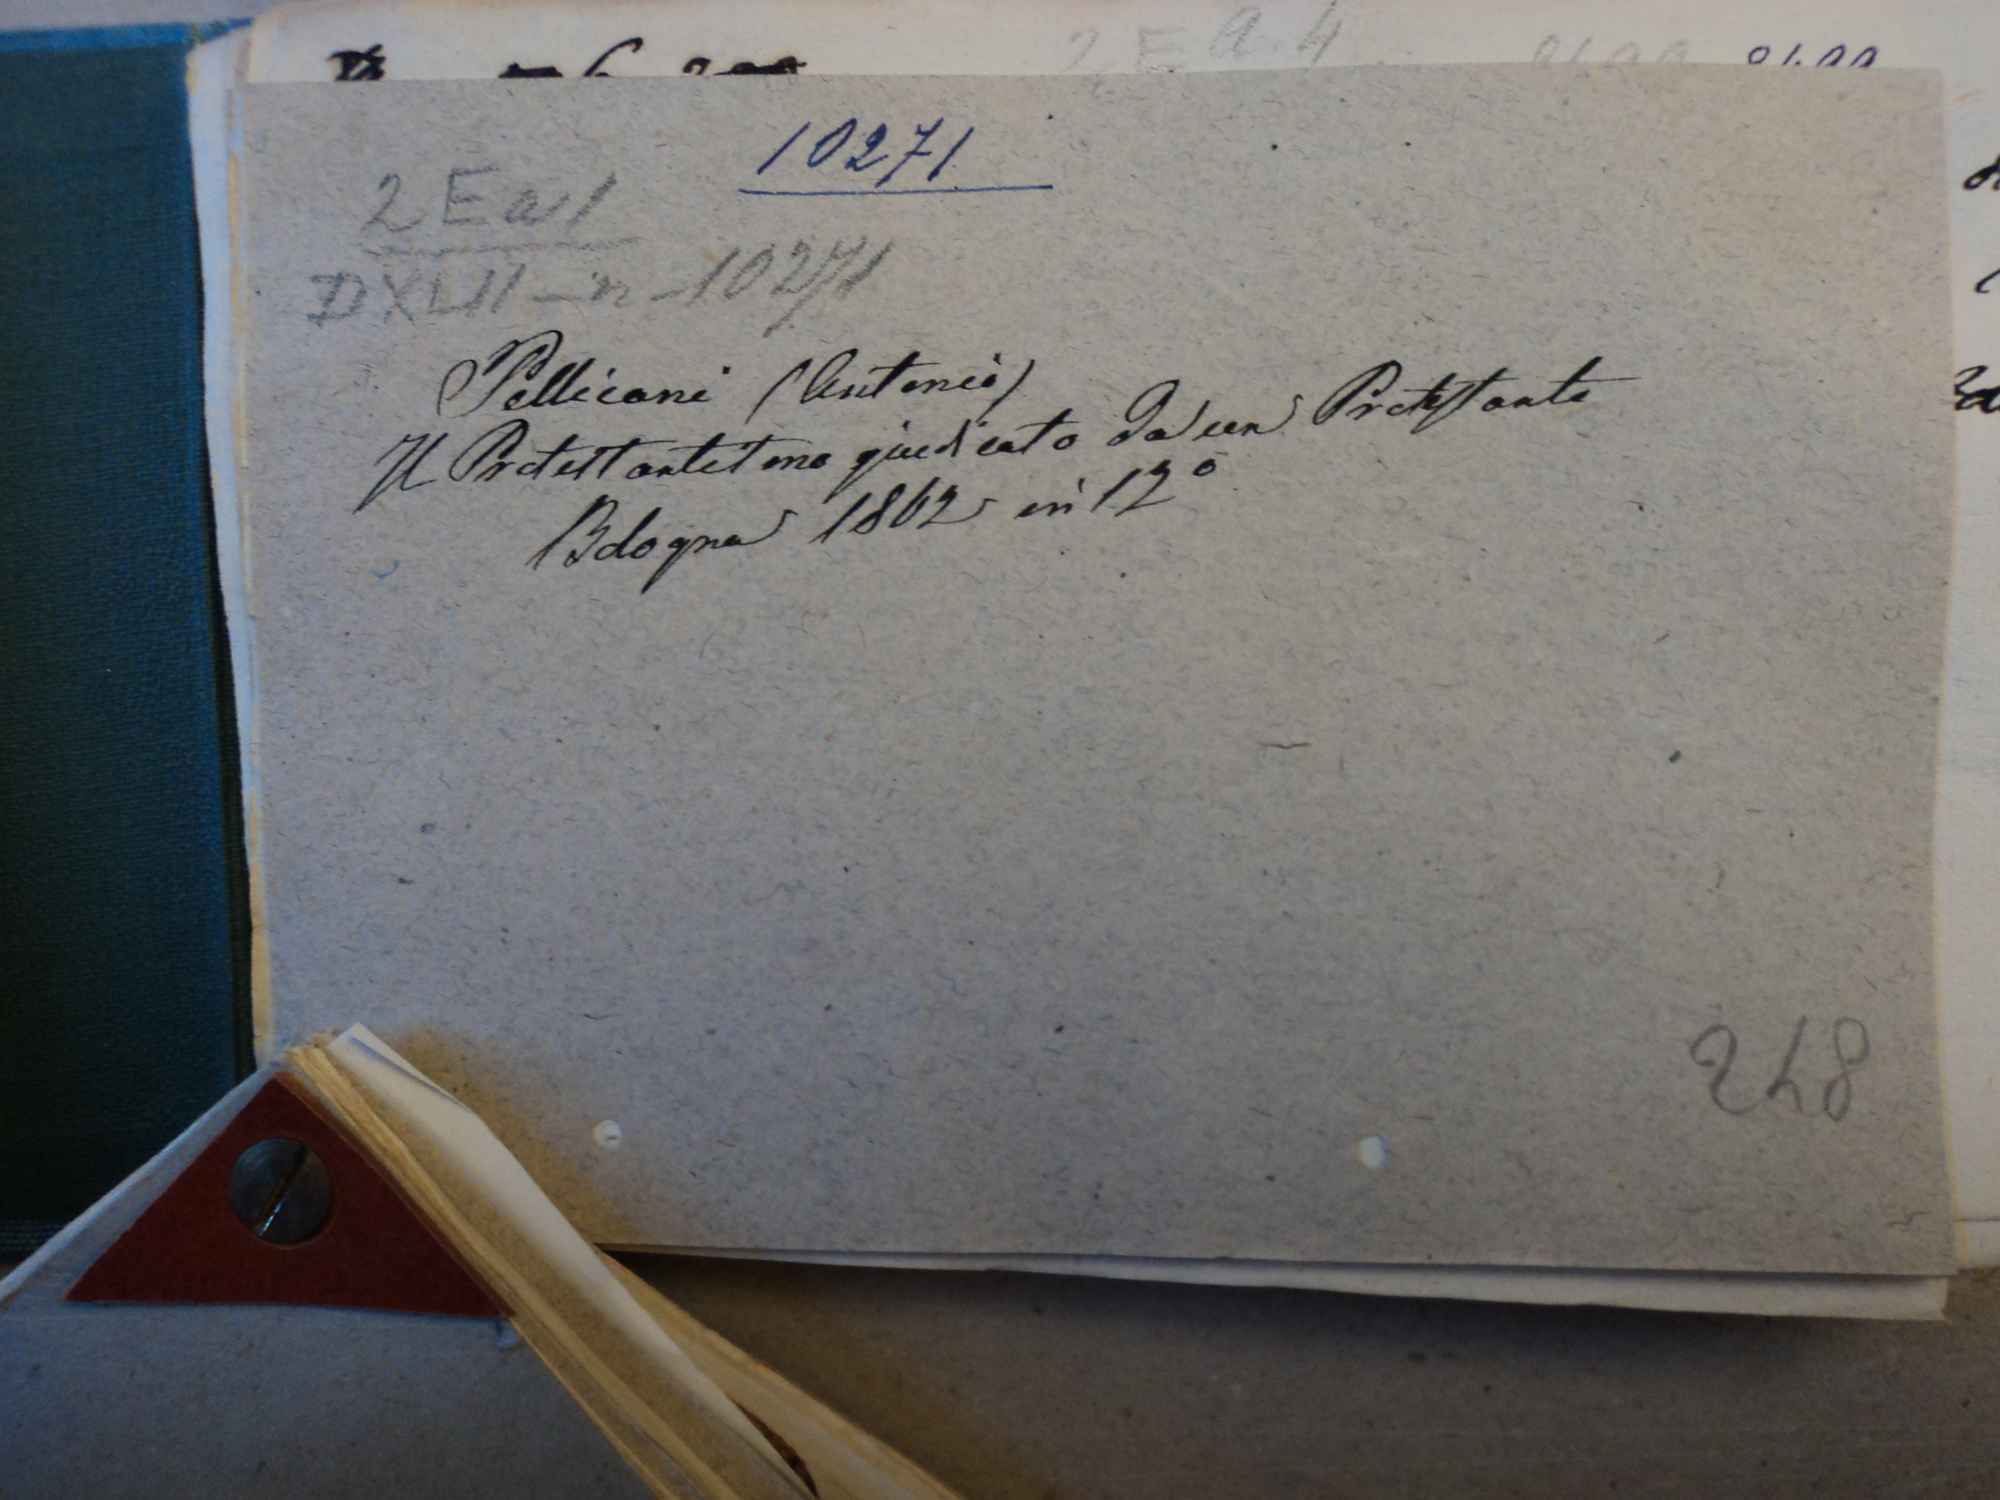 2 E a 4
10271
2 E a 1
DXLII - n - 10271
Pellicani (Antonio)
Il Protestantesimo giudicato da un Protestante
Bologna 1862 in 12°
248